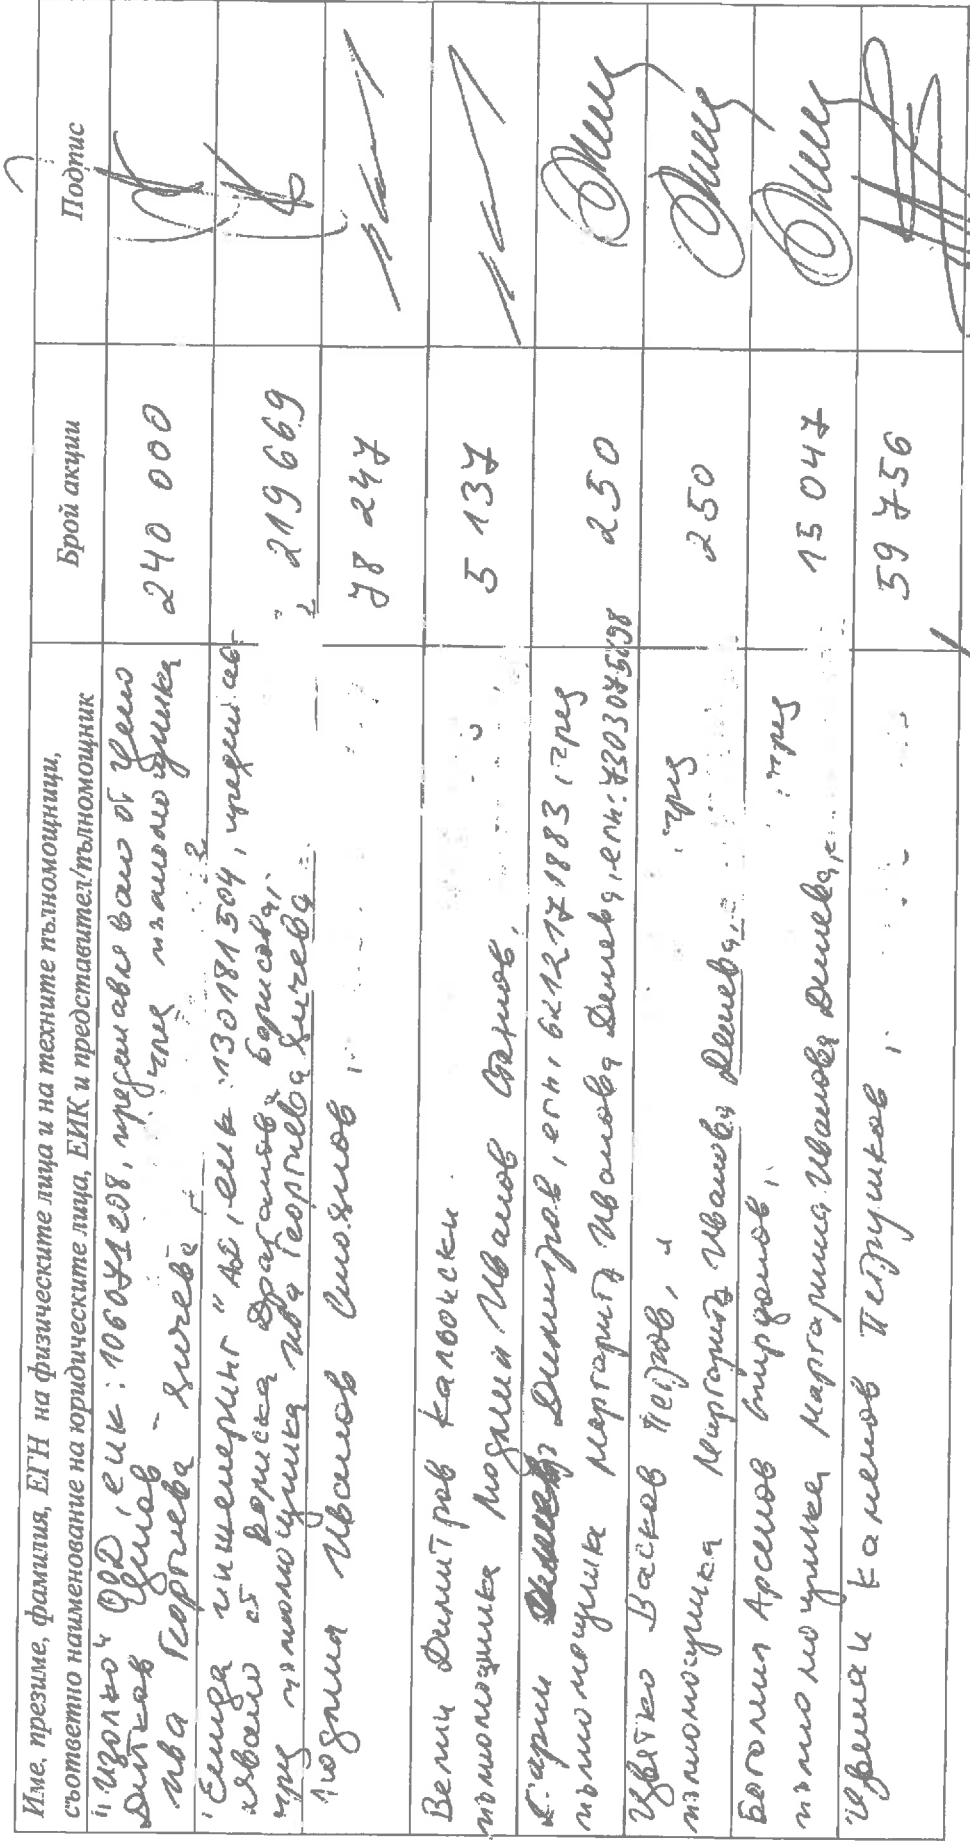 Име, презиме, фамилия, ЕГН на физическите лица и на техните пълномощници,
съответно наименование на юридическите лица, ЕИК и представител/пълномощник
Брой акции
Подпис
ООД, еик: 106071208, представлявано от Цено
Дитков Ценов чрез пълномощника
Ива Георгиева - Янчева
240 000
инженеринг" АД, еик: 130181504, представ-
лявано от Бориска Драганова Борисова,
чрез пълномощника Ива Георгиева Янчева
219 669
Людмил Иванов Стоянов,
78 247
Велин Димитров Калвокски
пълномощника Людмил Иванов Стоянов,
5 137
Димитров, егн, чрез
пълномощника Маргарита Иванова Динева, егн:
250
Цветко Васков Петров, чрез
пълномощника Маргарита Иванова Динева,
250
Богомил Арсенов Спиридонов, чрез
пълномощника Маргарита Иванова Динева,
15 047
Каменов Петрушков,
59 756